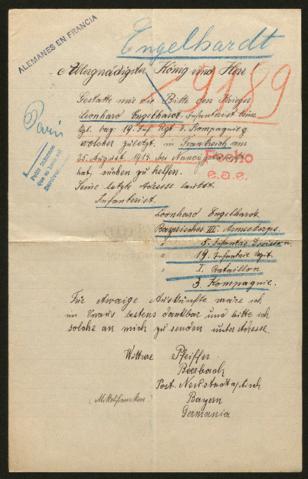 ALEMANES EN FRANCIA
Engelhardt
Allergnädigster König und Herr
29189
Gestatte mir die Bitte den Krieger
Leonhard Engelhardt, Infanterist beim
Kgl. bay. 19. Inf. Rgt. 3. Kompagnie
welcher zuletzt in Frankreich am
25. August 1914 bei Nancy
hat, suchen zu helfen.
Paris
Fecho
e.a.e.
Seine letzte Adresse lautet:
Infanterist
Leonhard Engelhardt
Bayerisches III. Armeekorps
" 5. Infantrie Division
" 19. Infantrie Regt.
" I. Bataillon
" 3. Kompagnie.
Für etwaige Auskünfte wäre ich
im Voraus bestens dankbar und bitte ich
solche an mich zu senden unter Adresse.
Witwe Pfeiffer
Post. Neustadt a/Aisch
(Mittelfranken) Bayern
Germania